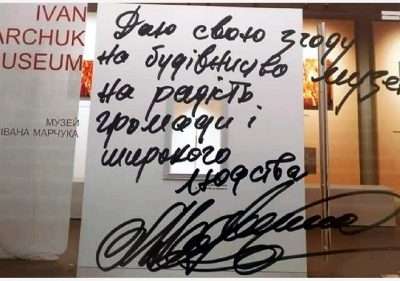 IVAN
ARCHUK
USEUM
МУЗЕЙ
ІВАНА МАРЧУКА
Даю свою згоду
на будівництво музею
на радість
громади і
широкого
людства